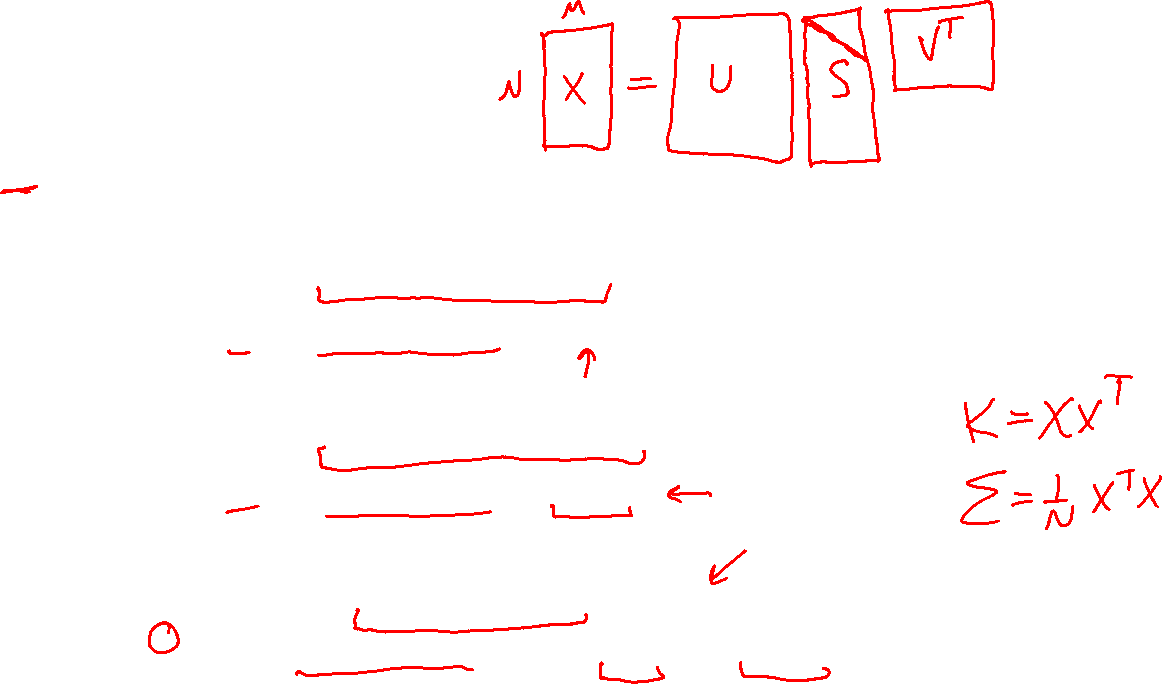 M
N X = U S Vᵀ
K = XXᵀ
Σ = 1/N XᵀX